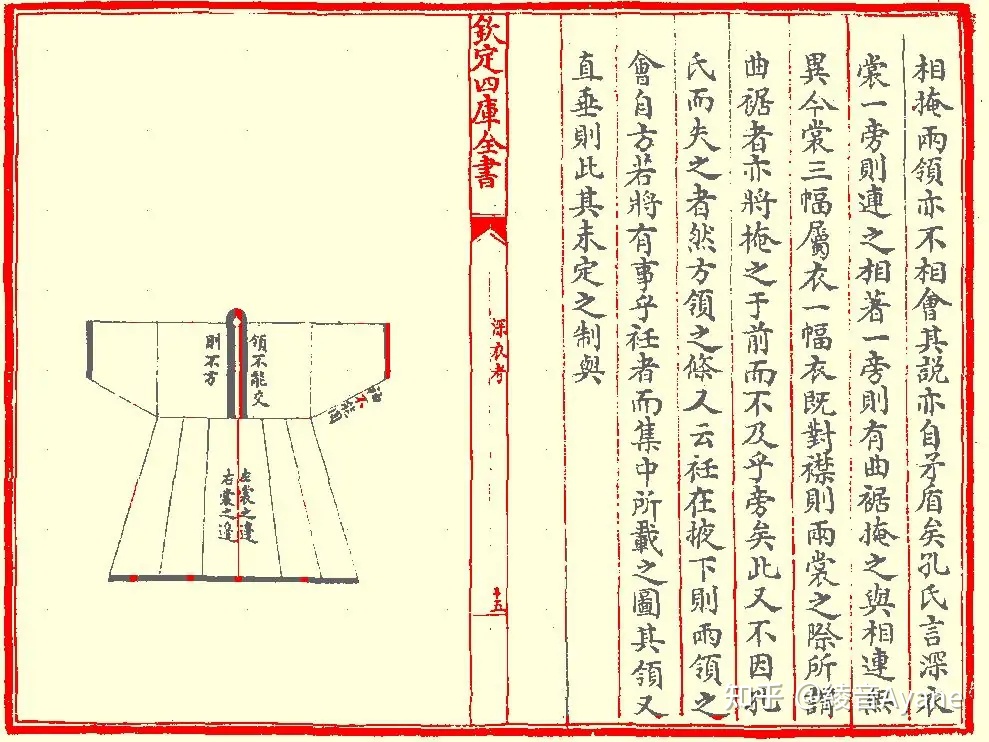 相掩兩領亦不相會其說亦自矛盾矣孔氏言深衣
裳一旁則連之相著一旁則有曲裾掩之與相連無
異今裳三幅屬衣一幅衣既對襟則兩裳之際所謂
曲裾者亦將掩之于前而不及乎旁矣此又不因孔
氏而失之者然方領之條又云衽在掖下則兩領之
會自方若將有事乎衽者而集中所載之圖其領又
直垂則此其未定之制與
欽定四庫全書
深衣考
十五
領不能交
則不方
左裳之邊
右裳之邊
知乎 @绫音Ayane